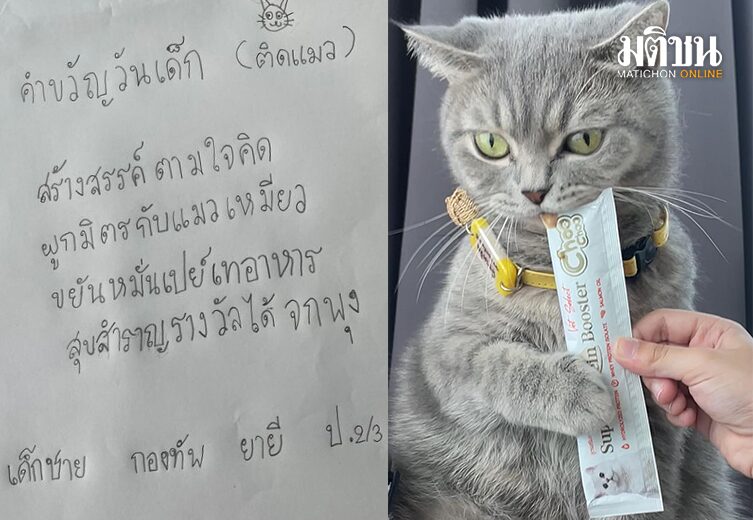 คำขวัญวันเด็ก (ติดแมว)
สร้างสรรค์ ตามใจคิด
ผูกมิตรกับแมวเหมียว
ขยันหมั่นเปย์เทอาหาร
สุขสำราญรางวัลได้ จกพุง
เด็กชาย กองทัพ ยายี ป.2/3
มติชน
MATICHON ONLINE
Choo Choo
Cat Select
Booster
HYDROLYZED PROTEIN
WHEY PROTEIN ISOLATE
SALMON OIL